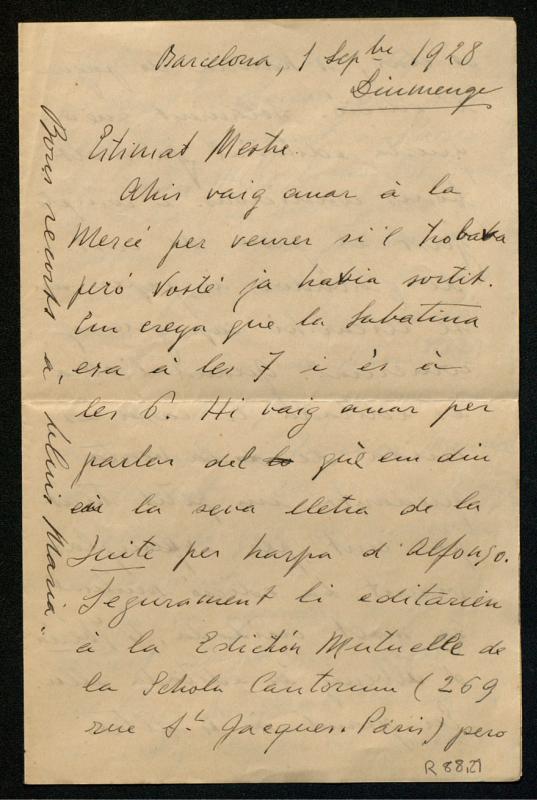 Barcelona, 1 Sepbre 1928
Diumenge
Estimat Mestre.
Ahir vaig anar à la
Mercé per veurer si'l trobava
peró Vosté ja havia sortit.
Em creya que la Sabatina
era à les 7 i és à
les 6. Hi vaig anar per
parlar del què em diu
en la seva lletra de la
Suite per harpa d'Alfonso.
Segurament li editarien
à la Edición Mutuelle de
la Schola Cantorum (269
rue St Jacques. Paris) pero
Bons recorts a Lluis Maria.
R 88,21